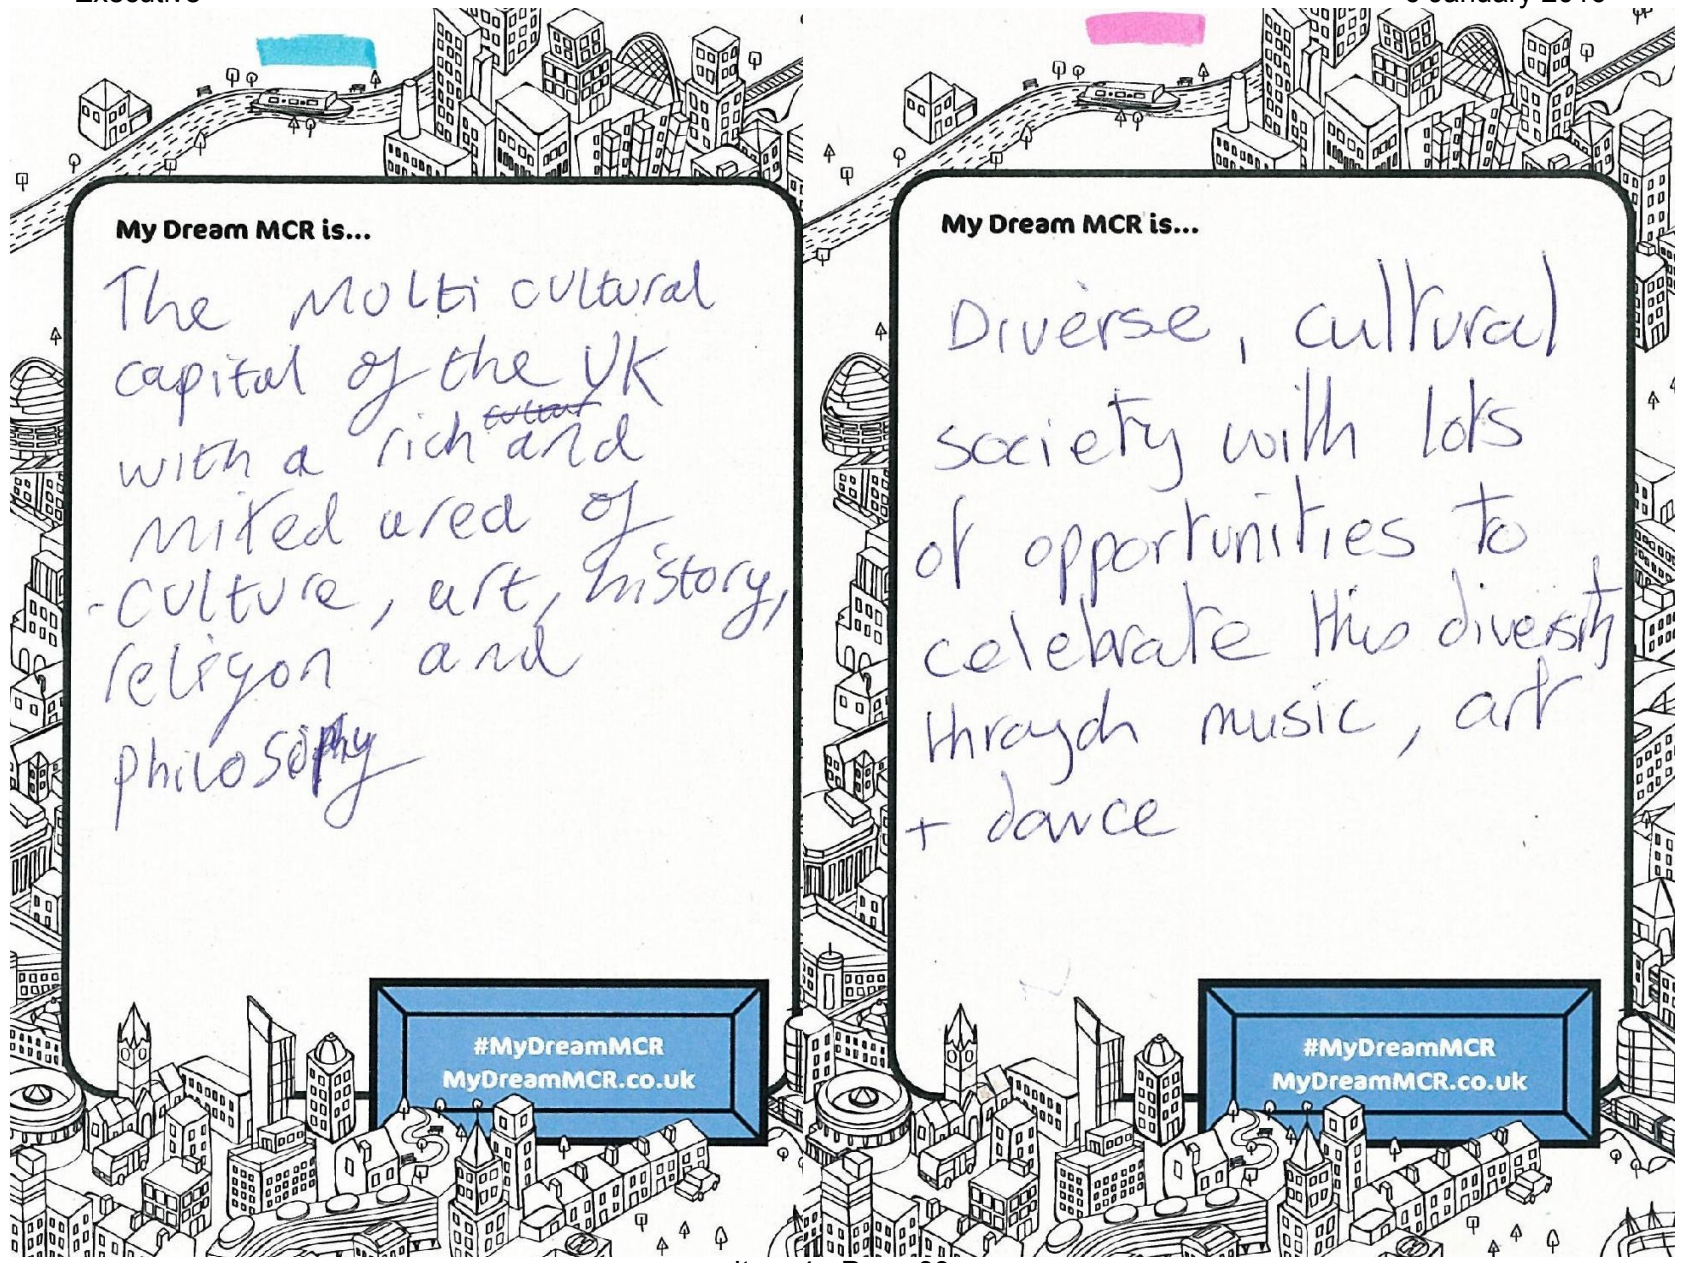 Executive
My Dream MCR is...
The Molti cultural
capital of the UK
with a rich and
mixed ared of
culture, art, history,
religon and
philosophy
#MyDreamMCR
MyDreamMCR.co.uk
My Dream MCR is...
Diverse, cultural
society with lots
of opportunities to
celebrate this diversity
through music, art
+ dance
#MyDreamMCR
MyDreamMCR.co.uk